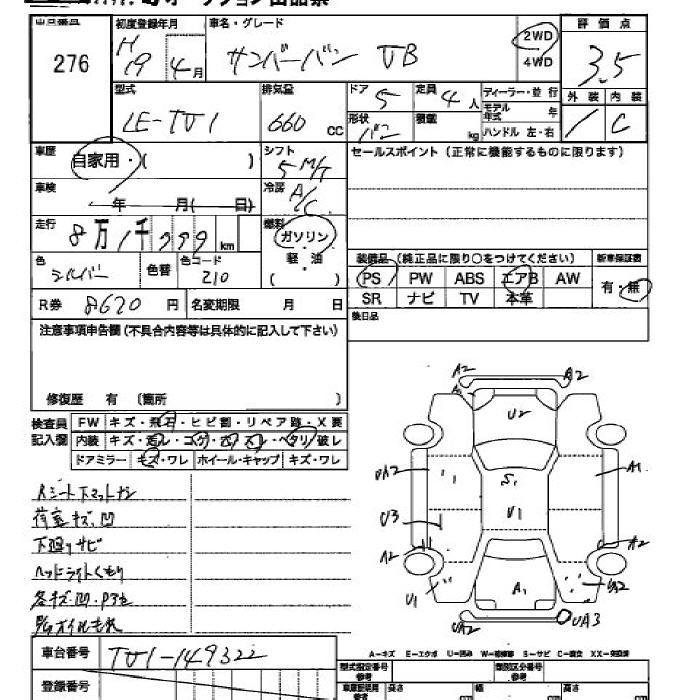 出品番号 初度登録年月 車名・グレード 評価点
276 H19 4月 サンバーバン VB 2WD 4WD 3.5
型式 LE-TV1 排気量 660 CC ドア 5 定員 4人 ディーラー・並行 外装 内装
形状 バン 積載 kg モデル年式 年 ハンドル 左・右 / C
車歴 自家用・( ) シフト 5M/T セールスポイント(正常に機能するものに限ります)
車検 年 月( 日) 冷房 A/C
走行 8万1千999km 燃料 ガソリン
軽・油
( )
色 シルバー 色替 色コード 210
装備品(純正品に限り○をつけてください) 新車保証書
PS PW ABS エアB AW 有・無
SR ナビ TV 本革
R券 8620円 名変期限 月 日 後日品
注意事項申告欄(不具合内容等は具体的に記入して下さい)
修復歴 有 〔箇所 〕
検査員記入欄 FW キズ・飛石・ヒビ割・リペア跡・X要
内装 キズ・汚レ・コゲ・穴・スレ・ヘタリ・破レ
ドアミラー キズ・ワレ ホイール・キャップ キズ・ワレ
Rシート下マットナシ
荷室キズ、凹
下廻りサビ
ヘッドライトくもり
各キズ・凹・
オイルもれ
A2 A2
U2
UA2 S1 A1
U3 U1
A2 A2
U1 A1 UA2
UA2 UA3
A-キズ E-エクボ U-凹み W-補修跡 S-サビ C-腐食 XX-交換済
車台番号 TV1-149322 型式指定番号 参考 類別区分番号 参考
登録番号 車検証記載用 参考 長さ cm 幅 cm 高さ cm